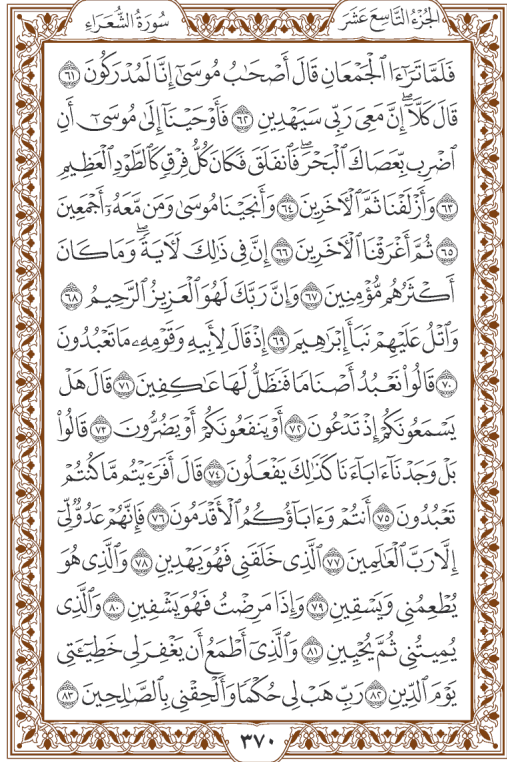 الجُزْءُ التَّاسِعَ عَشَرَ
سُورَةُ الشُّعَرَاءِ
فَلَمَّا تَرَٰٓءَا ٱلْجَمْعَانِ قَالَ أَصْحَٰبُ مُوسَىٰٓ إِنَّا لَمُدْرَكُونَ ٦١
قَالَ كَلَّآۖ إِنَّ مَعِىَ رَبِّى سَيَهْدِينِ ٦٢ فَأَوْحَيْنَآ إِلَىٰ مُوسَىٰٓ أَنِ
ٱضْرِب بِّعَصَاكَ ٱلْبَحْرَۖ فَٱنفَلَقَ فَكَانَ كُلُّ فِرْقٍ كَٱلطَّوْدِ ٱلْعَظِيمِ
٦٣ وَأَزْلَفْنَا ثَمَّ ٱلْءَاخَرِينَ ٦٤ وَأَنجَيْنَا مُوسَىٰ وَمَن مَّعَهُۥٓ أَجْمَعِينَ
٦٥ ثُمَّ أَغْرَقْنَا ٱلْءَاخَرِينَ ٦٦ إِنَّ فِى ذَٰلِكَ لَءَايَةًۖ وَمَا كَانَ
أَكْثَرُهُم مُّؤْمِنِينَ ٦٧ وَإِنَّ رَبَّكَ لَهُوَ ٱلْعَزِيزُ ٱلرَّحِيمُ ٦٨
وَٱتْلُ عَلَيْهِمْ نَبَأَ إِبْرَٰهِيمَ ٦٩ إِذْ قَالَ لِأَبِيهِ وَقَوْمِهِۦ مَا تَعْبُدُونَ
٧٠ قَالُوا۟ نَعْبُدُ أَصْنَامًا فَنَظَلُّ لَهَا عَٰكِفِينَ ٧١ قَالَ هَلْ
يَسْمَعُونَكُمْ إِذْ تَدْعُونَ ٧٢ أَوْ يَنفَعُونَكُمْ أَوْ يَضُرُّونَ ٧٣ قَالُوا۟
بَلْ وَجَدْنَآ ءَابَآءَنَا كَذَٰلِكَ يَفْعَلُونَ ٧٤ قَالَ أَفَرَءَيْتُم مَّا كُنتُمْ
تَعْبُدُونَ ٧٥ أَنتُمْ وَءَابَآؤُكُمُ ٱلْأَقْدَمُونَ ٧٦ فَإِنَّهُمْ عَدُوٌّ لِّىٓ
إِلَّا رَبَّ ٱلْعَٰلَمِينَ ٧٧ ٱلَّذِى خَلَقَنِى فَهُوَ يَهْدِينِ ٧٨ وَٱلَّذِى هُوَ
يُطْعِمُنِى وَيَسْقِينِ ٧٩ وَإِذَا مَرِضْتُ فَهُوَ يَشْفِينِ ٨٠ وَٱلَّذِى
يُمِيتُنِى ثُمَّ يُحْيِينِ ٨١ وَٱلَّذِىٓ أَطْمَعُ أَن يَغْفِرَ لِى خَطِيٓـَٔتِى
يَوْمَ ٱلدِّينِ ٨٢ رَبِّ هَبْ لِى حُكْمًا وَأَلْحِقْنِى بِٱلصَّٰلِحِينَ ٨٣
٣٧٠